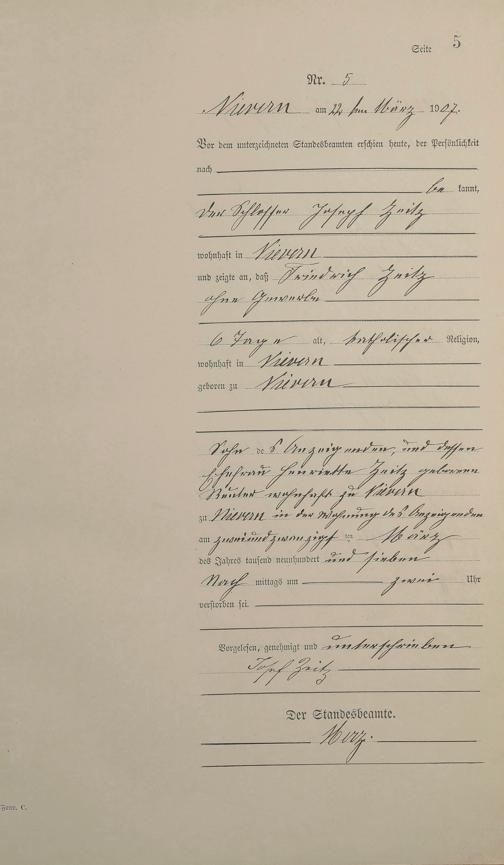 Seite 5
Nr. 5
Nievern am 22ten März 1907.
Vor dem unterzeichneten Standesbeamten erschien heute, der Persönlichkeit
nach
be kannt,
der Schlosser Joseph Zeitz
wohnhaft in Nievern
und zeigte an, daß Friedrich Zeitz
ohne Gewerbe
6 Tage alt, katholischer Religion,
wohnhaft in Nievern
geboren zu Nievern
Sohn des Anzeigenden, und dessen
Ehefrau Henriette Zeitz geborenen
Reuter wohnhaft zu Nievern
zu Nievern in der Wohnung des Anzeigenden
am zweiundzwanzigsten März
des Jahres tausend neunhundert und sieben
Nach mittags um zwei Uhr
verstorben sei.
Vorgelesen, genehmigt und unterschrieben
Josef Zeitz
Der Standesbeamte.
Merz.
Form. C.